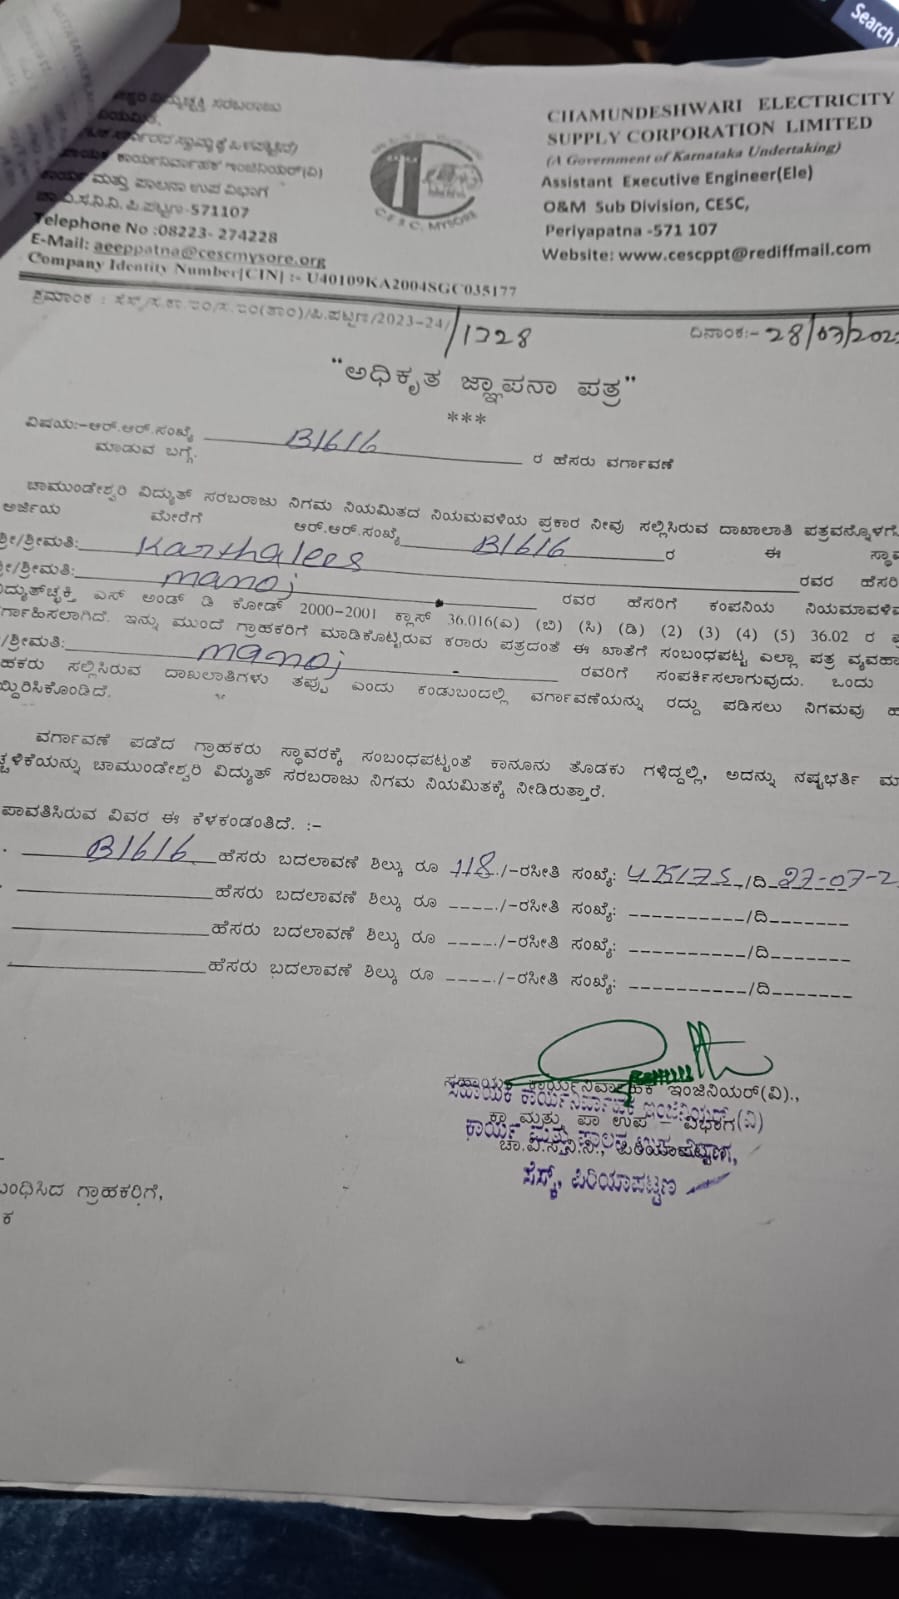 Search
ವಿದ್ಯುಚ್ಛಕ್ತಿ ಸರಬರಾಜು
ಕಾರ್ಯನಿರ್ವಾಹಕ ಇಂಜಿನಿಯರ್(ವಿ)
ಮತ್ತು ಪಾಲನಾ ಉಪ ವಿಭಾಗ
ಚಾ.ವಿ.ಸ.ನಿ.ನಿ. ಪಿ.ಪಟ್ಟಣ-571107
Telephone No :08223- 274228
E-Mail: aeeppatna@cescmysore.org
Company Identity Number[CIN] :- U40109KA2004SGC035177
C.E.S.C. MYSORE
CHAMUNDESHWARI ELECTRICITY
SUPPLY CORPORATION LIMITED
(A Government of Karnataka Undertaking)
Assistant Executive Engineer(Ele)
O&M Sub Division, CESC,
Periyapatna -571 107
Website: www.cescppt@rediffmail.com
ಕ್ರಮಾಂಕ : ಸೆಸ್ಕ್/ಸ.ಕಾ.ಇಂ/ಸ.ಇಂ(ತಾಂ)/ಪಿ.ಪಟ್ಟಣ/2023-24/
ದಿನಾಂಕ:- 28/07/202
"ಅಧಿಕೃತ ಜ್ಞಾಪನಾ ಪತ್ರ"
***
ವಿಷಯ:-ಆರ್.ಆರ್.ಸಂಖ್ಯೆ B1616 ರ ಹೆಸರು ವರ್ಗಾವಣೆ
ಮಾಡುವ ಬಗ್ಗೆ.
ಚಾಮುಂಡೇಶ್ವರಿ ವಿದ್ಯುತ್ ಸರಬರಾಜು ನಿಗಮ ನಿಯಮಿತದ ನಿಯಮವಳಿಯ ಪ್ರಕಾರ ನೀವು ಸಲ್ಲಿಸಿರುವ ದಾಖಾಲಾತಿ ಪತ್ರವನ್ನೊಳಗೆ
ಅರ್ಜಿಯ ಮೇರೆಗೆ ಆರ್.ಆರ್.ಸಂಖ್ಯೆ B1616 ರ ಈ ಸ್ಥಾವ
ಶ್ರೀ/ಶ್ರೀಮತಿ: Karthalees ರವರ ಹೆಸರಿ
ಶ್ರೀ/ಶ್ರೀಮತಿ: manoj ರವರ ಹೆಸರಿಗೆ ಕಂಪನಿಯ ನಿಯಮಾವಳಿ
ವಿದ್ಯುತ್‌ಚ್ಛಕ್ತಿ ಎಸ್ ಅಂಡ್ ಡಿ ಕೋಡ್ 2000-2001 ಕ್ಲಾಸ್ 36.016(ಎ) (ಬಿ) (ಸಿ) (ಡಿ) (2) (3) (4) (5) 36.02 ರ
ವರ್ಗಾಹಿಸಲಾಗಿದೆ. ಇನ್ನು ಮುಂದೆ ಗ್ರಾಹಕರಿಗೆ ಮಾಡಿಕೊಟ್ಟಿರುವ ಕರಾರು ಪತ್ರದಂತೆ ಈ ಖಾತೆಗೆ ಸಂಬಂಧಪಟ್ಟ ಎಲ್ಲಾ ಪತ್ರ ವ್ಯವಹಾ
/ಶ್ರೀಮತಿ: manoj ರವರಿಗೆ ಸಂಪರ್ಕಿಸಲಾಗುವುದು. ಒಂದು
ಹಕರು ಸಲ್ಲಿಸಿರುವ ದಾಖಲಾತಿಗಳು ತಪ್ಪು ಎಂದು ಕಂಡುಬಂದಲ್ಲಿ ವರ್ಗಾವಣೆಯನ್ನು ರದ್ದು ಪಡಿಸಲು ನಿಗಮವು ಹ
ದ್ದಿರಿಸಿಕೊಂಡಿದೆ.
ವರ್ಗಾವಣೆ ಪಡೆದ ಗ್ರಾಹಕರು ಸ್ಥಾವರಕ್ಕೆ ಸಂಬಂಧಪಟ್ಟಂತೆ ಕಾನೂನು ತೊಡಕು ಗಳಿದ್ದಲ್ಲಿ, ಅದನ್ನು ನಷ್ಟಭರ್ತಿ ಮಾ
ಚ್ಚಳಿಕೆಯನ್ನು ಚಾಮುಂಡೇಶ್ವರಿ ವಿದ್ಯುತ್ ಸರಬರಾಜು ನಿಗಮ ನಿಯಮಿತಕ್ಕೆ ನೀಡಿರುತ್ತಾರೆ.
ಪಾವತಿಸಿರುವ ವಿವರ ಈ ಕೆಳಕಂಡಂತಿದೆ. :-
B1616 ಹೆಸರು ಬದಲಾವಣೆ ಶಿಲ್ಕು ರೂ 118./-ರಸೀತಿ ಸಂಖ್ಯೆ: /ದಿ 27-07-2
ಹೆಸರು ಬದಲಾವಣೆ ಶಿಲ್ಕು ರೂ ____./-ರಸೀತಿ ಸಂಖ್ಯೆ: __________/ದಿ_______
ಹೆಸರು ಬದಲಾವಣೆ ಶಿಲ್ಕು ರೂ ____./-ರಸೀತಿ ಸಂಖ್ಯೆ: __________/ದಿ_______
ಹೆಸರು ಬದಲಾವಣೆ ಶಿಲ್ಕು ರೂ ____./-ರಸೀತಿ ಸಂಖ್ಯೆ: __________/ದಿ_______
ಸಹಾಯಕ ಕಾರ್ಯನಿರ್ವಾಹಕ ಇಂಜಿನಿಯರ್(ವಿ).,
ಸಹಾಯಕ ಕಾರ್ಯನಿರ್ವಾಹಕ ಇಂಜಿನಿಯರ್(ವಿ)
ಕಾ ಮತ್ತು ಪಾ ಉಪ - ವಿಭಾಗ
ಚಾ.ವಿ.ಸ.ನಿ.ನಿ., ಪಿರಿಯಾಪಟ್ಟಣ,
ಸೆಸ್ಕ್, ಪಿರಿಯಾಪಟ್ಟಣ
ಬಂಧಿಸಿದ ಗ್ರಾಹಕರಿಗೆ,
ಕ